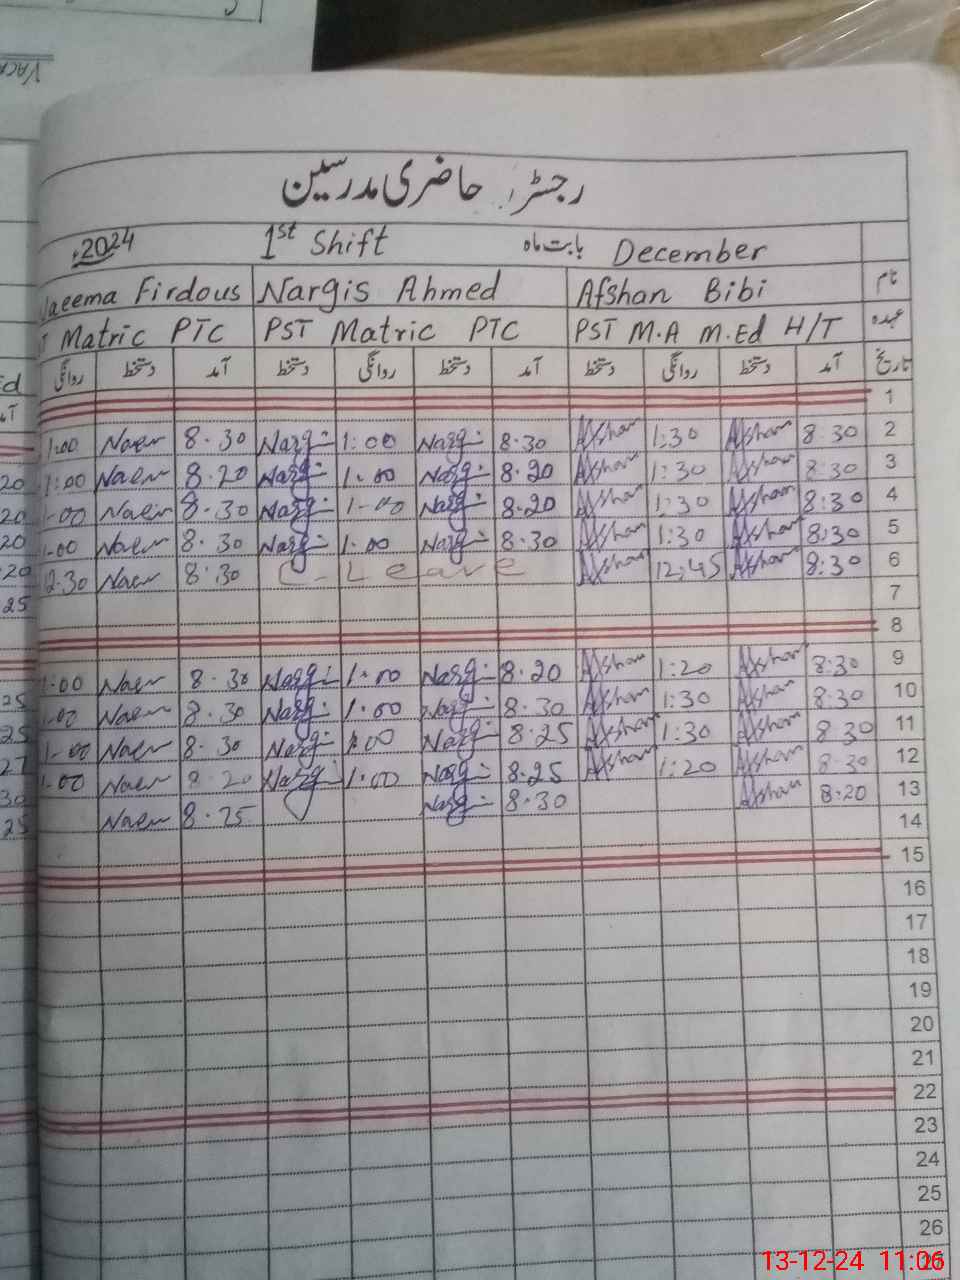 رجسٹر حاضری مدرسین
2024ء 1st Shift بابت ماہ December
Naeema Firdous Nargis Ahmed Afshan Bibi نام
Matric PTC PST Matric PTC PST M.A M.Ed H/T عہدہ
روانگی دستخط آمد دستخط روانگی دستخط آمد دستخط روانگی دستخط آمد تاریخ
1
1:00 Naem 8.30 Narg: 1:00 Narg: 8.30 Afshan 1:30 Afshan 8:30 2
1:00 Naem 8.20 Narg: 1.00 Narg: 8.20 Afshan 1:30 Afshan 8:30 3
1-00 Naem 8.30 Narg: 1-00 Narg: 8.20 Afshan 1:30 Afshan 8:30 4
1-00 Naem 8.30 Narg: 1.00 Narg: 8.30 Afshan 1:30 Afshan 8:30 5
12.30 Naem 8.30 C-Leave Afshan 12:45 Afshan 8:30 6
7
8
1:00 Naem 8.30 Narg: 1.00 Narg: 8.20 Afshan 1:20 Afshan 8:30 9
1-00 Naem 8.30 Narg: 1.00 Narg: 8.30 Afshan 1:30 Afshan 8:30 10
1-00 Naem 8.30 Narg: 1.00 Narg: 8.25 Afshan 1:30 Afshan 8:30 11
1-00 Naem 8.20 Narg: 1.00 Narg: 8.25 Afshan 1:20 Afshan 8:30 12
Naem 8.25 Narg: 8.30 Afshan 8:20 13
14
15
16
17
18
19
20
21
22
23
24
25
26
13-12-24 11:06